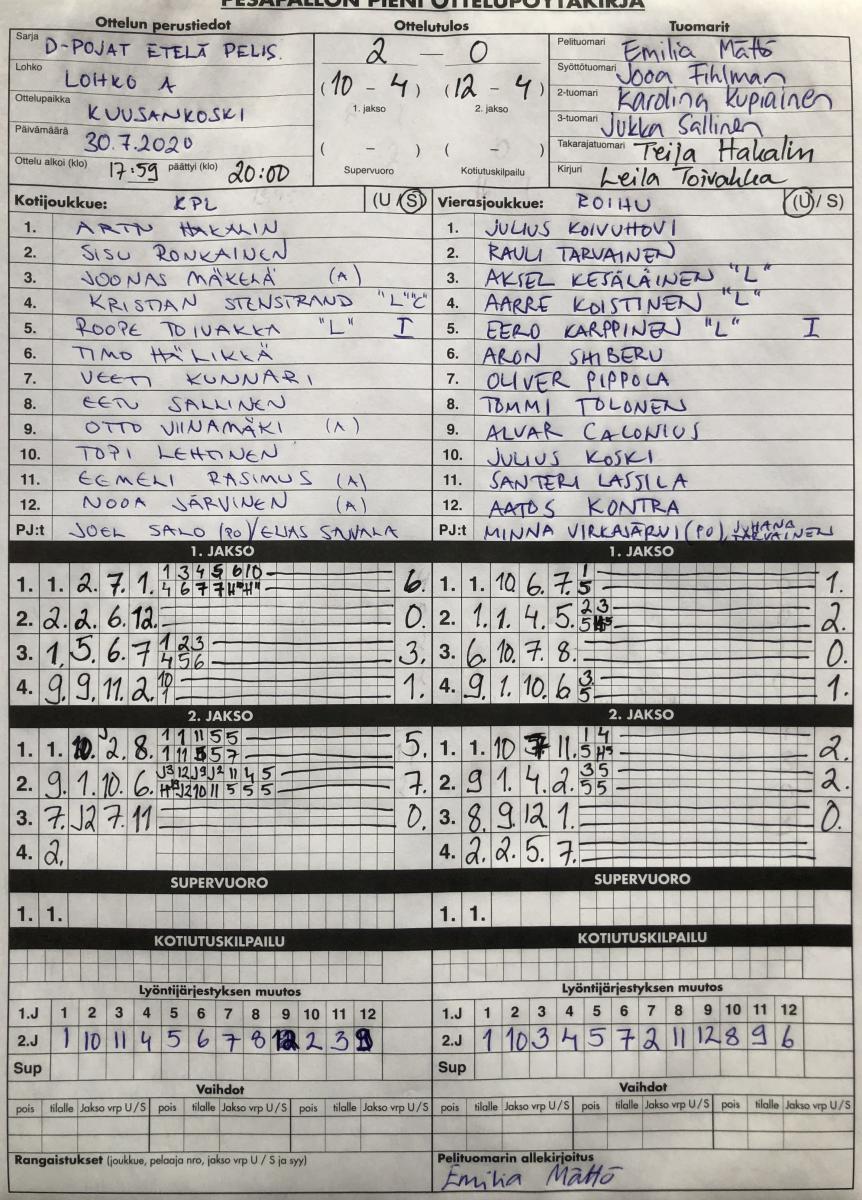 PESÄPALLON PIENI OTTELUPÖYTÄKIRJA
Ottelun perustiedot
Sarja D-POJAT ETELÄ PELIS.
Lohko LOHKO A
Ottelupaikka KUUSANKOSKI
Päivämäärä 30.7.2020
Ottelu alkoi (klo) 17:59 päättyi (klo) 20:00
Ottelutulos
2 — 0
(10 - 4) (12 - 4)
1. jakso 2. jakso
( - ) ( - )
Supervuoro Kotiutuskilpailu
Tuomarit
Pelituomari Emilia Mättö
Syöttötuomari Jooa Fihlman
2-tuomari Karolina Kupiainen
3-tuomari Jukka Sallinen
Takarajatuomari Teija Hakalin
Kirjuri Leila Toivakka
Kotijoukkue: KPL (U / S)
1. ARTTU HAKALIN
2. SISU RONKAINEN
3. JOONAS MÄKELÄ (A)
4. KRISTIAN STENSTRAND "L" "C"
5. ROOPE TOIVAKKA "L" I
6. TIMO HÄLIKKÄ
7. VEETI KUNNARI
8. EETU SALLINEN
9. OTTO VIINAMÄKI (A)
10. TOPI LEHTINEN
11. EEMELI RASIMUS (A)
12. NOOA JÄRVINEN (A)
PJ:t JOEL SALO (PO) / ELIAS SAVALA
Vierasjoukkue: ROIHU (U / S)
1. JULIUS KOIVUHOVI
2. RAULI TARVAINEN
3. AKSEL KESÄLÄINEN "L"
4. AARRE KOISTINEN "L"
5. EERO KARPPINEN "L" I
6. ARON SHIBERU
7. OLIVER PIPPOLA
8. TOMMI TOLONEN
9. ALVAR CALONIUS
10. JULIUS KOSKI
11. SANTERI LASSILA
12. AATOS KONTRA
PJ:t MINNA VIRKAJÄRVI (PO), JUHANA TARVAINEN
1. JAKSO
1. 1. 2. 7. 1. 1 3 4 5 6 10 6.
4 6 7 7 H" H"
2. 2. 2. 6. 12. 0.
3. 1. 5. 6. 7 1 2 3 3.
4 5 6
4. 9. 9. 11. 2. 10 1.
1
1. JAKSO
1. 1. 10. 6. 7. 1 1.
5
2. 1. 1. 4. 5. 2 3 2.
5 H5
3. 6. 10. 7. 8. 0.
4. 9. 1. 10. 6 3 1.
5
2. JAKSO
1. 1. 10. 2. 8. 1 1 11 5 5 5.
1 11 5 5 7
2. 9. 1. 10. 6. J3 12 J9 J2 11 4 5 7.
J2 10 11 5 5 5
3. 7. J2 7. 11 0.
4. 2.
2. JAKSO
1. 1. 10 11. 1 4 2.
5 H5
2. 9 1. 4. 2. 3 5 2.
5 5
3. 8. 9. 12 1. 0.
4. 2. 2. 5. 7.
SUPERVUORO
1. 1.
SUPERVUORO
1. 1.
KOTIUTUSKILPAILU
KOTIUTUSKILPAILU
Lyöntijärjestyksen muutos
1.J 1 2 3 4 5 6 7 8 9 10 11 12
2.J 1 10 11 4 5 6 7 8 12 2 3 9
Sup
Lyöntijärjestyksen muutos
1.J 1 2 3 4 5 6 7 8 9 10 11 12
2.J 1 10 3 4 5 7 2 11 12 8 9 6
Sup
Vaihdot
pois tilalle Jakso vrp U / S pois tilalle Jakso vrp U / S pois tilalle Jakso vrp U / S
Vaihdot
pois tilalle Jakso vrp U / S pois tilalle Jakso vrp U / S pois tilalle Jakso vrp U / S
Rangaistukset (joukkue, pelaaja nro, jakso vrp U / S ja syy)
Pelituomarin allekirjoitus
Emilia Mättö